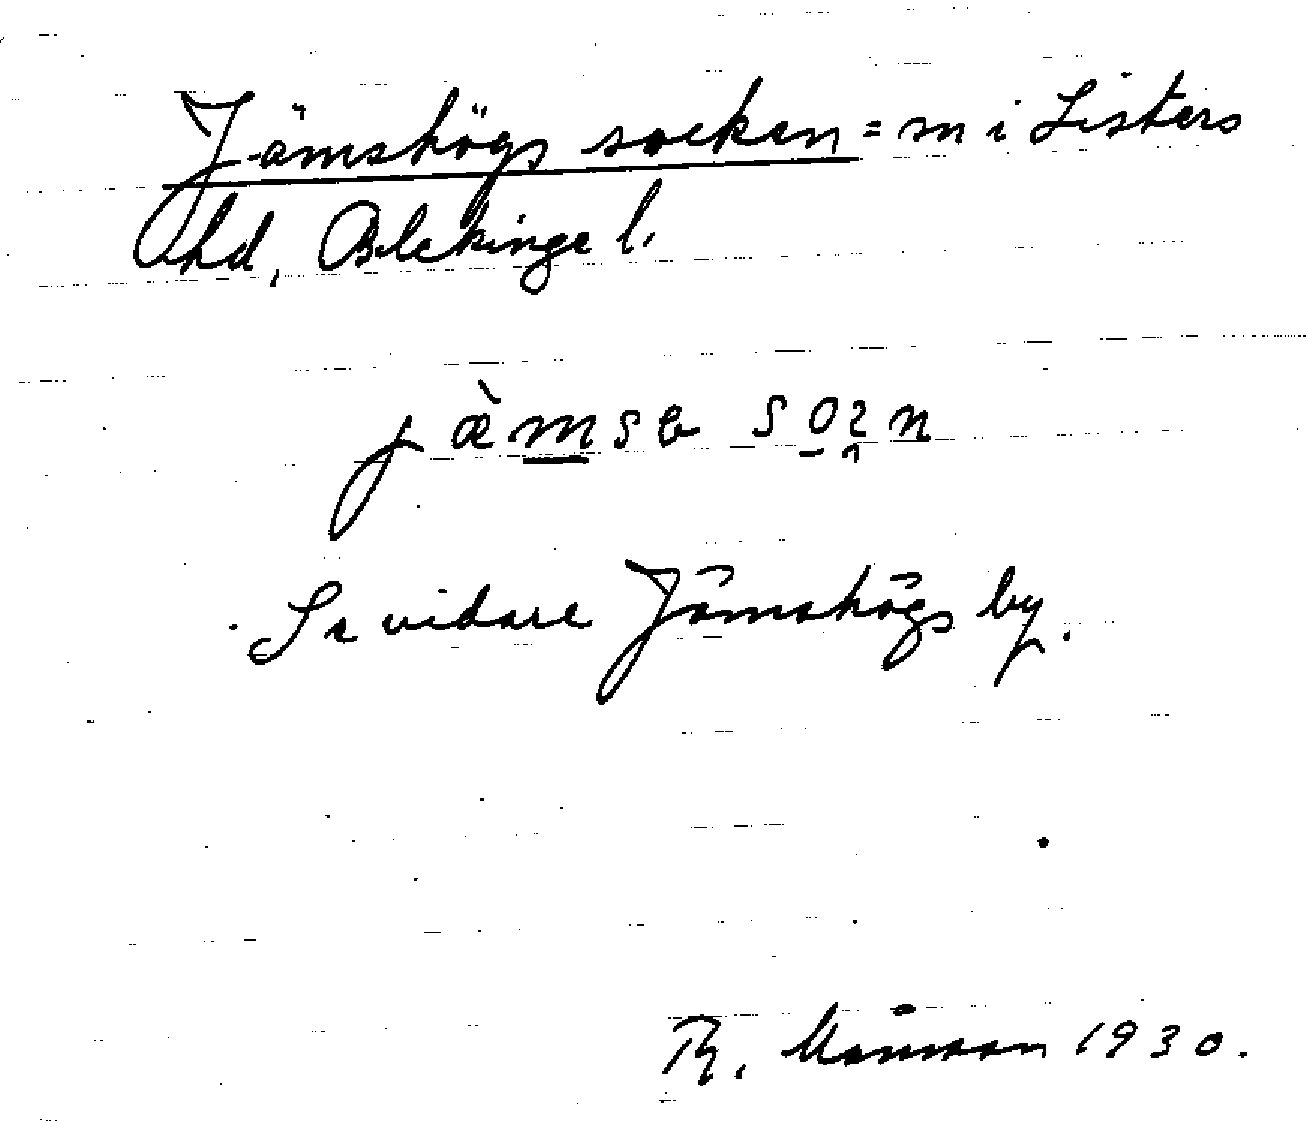 Jämshögs socken = m i Listers
hd, Blekinge l.
jæ̀msɐ so2n
Se vidare Jämshögs by.
1930.